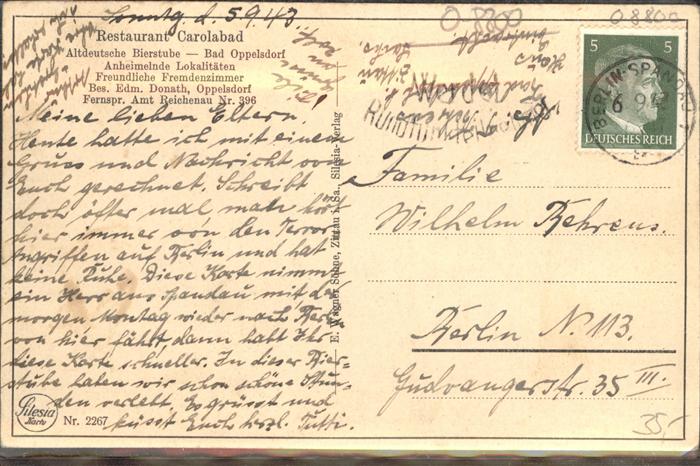 Sonntg. d. 5.9.43.
Restaurant Carolabad
Altdeutsche Bierstube — Bad Oppelsdorf
Anheimelnde Lokalitäten
Freundliche Fremdenzimmer
Bes. Edm. Donath, Oppelsdorf
Fernspr. Amt Reichenau Nr. 396
Meine lieben Eltern.
Heute hatte ich mit einem
Gruss und Nachricht von
Euch gerechnet. Schreibt
doch öfter mal, man hört
hier immer von den Terror
Angriffen auf Berlin und hat
keine Ruhe. Diese Karte nimmt
ein Herr aus Spandau mit, der
morgen Montag wieder nach Berlin
von hier fährt, dann habt Ihr
diese Karte schneller. In dieser Bier-
stube haben wir schon schöne Stun-
den verlebt. Es grüsst und
küsst Euch herzl. Tutti.
Silesia
Karte
Nr. 2267
E. Wagner Söhne, Zittau i. Sa., Silesia-Verlag
O 8800
O 8800
5 5
DEUTSCHES REICH
BERLIN-SPANDAU 1
6.9.
Familie
Wilhelm Behrens.
Berlin N. 113.
Gudvangerstr. 35 III.
35,-